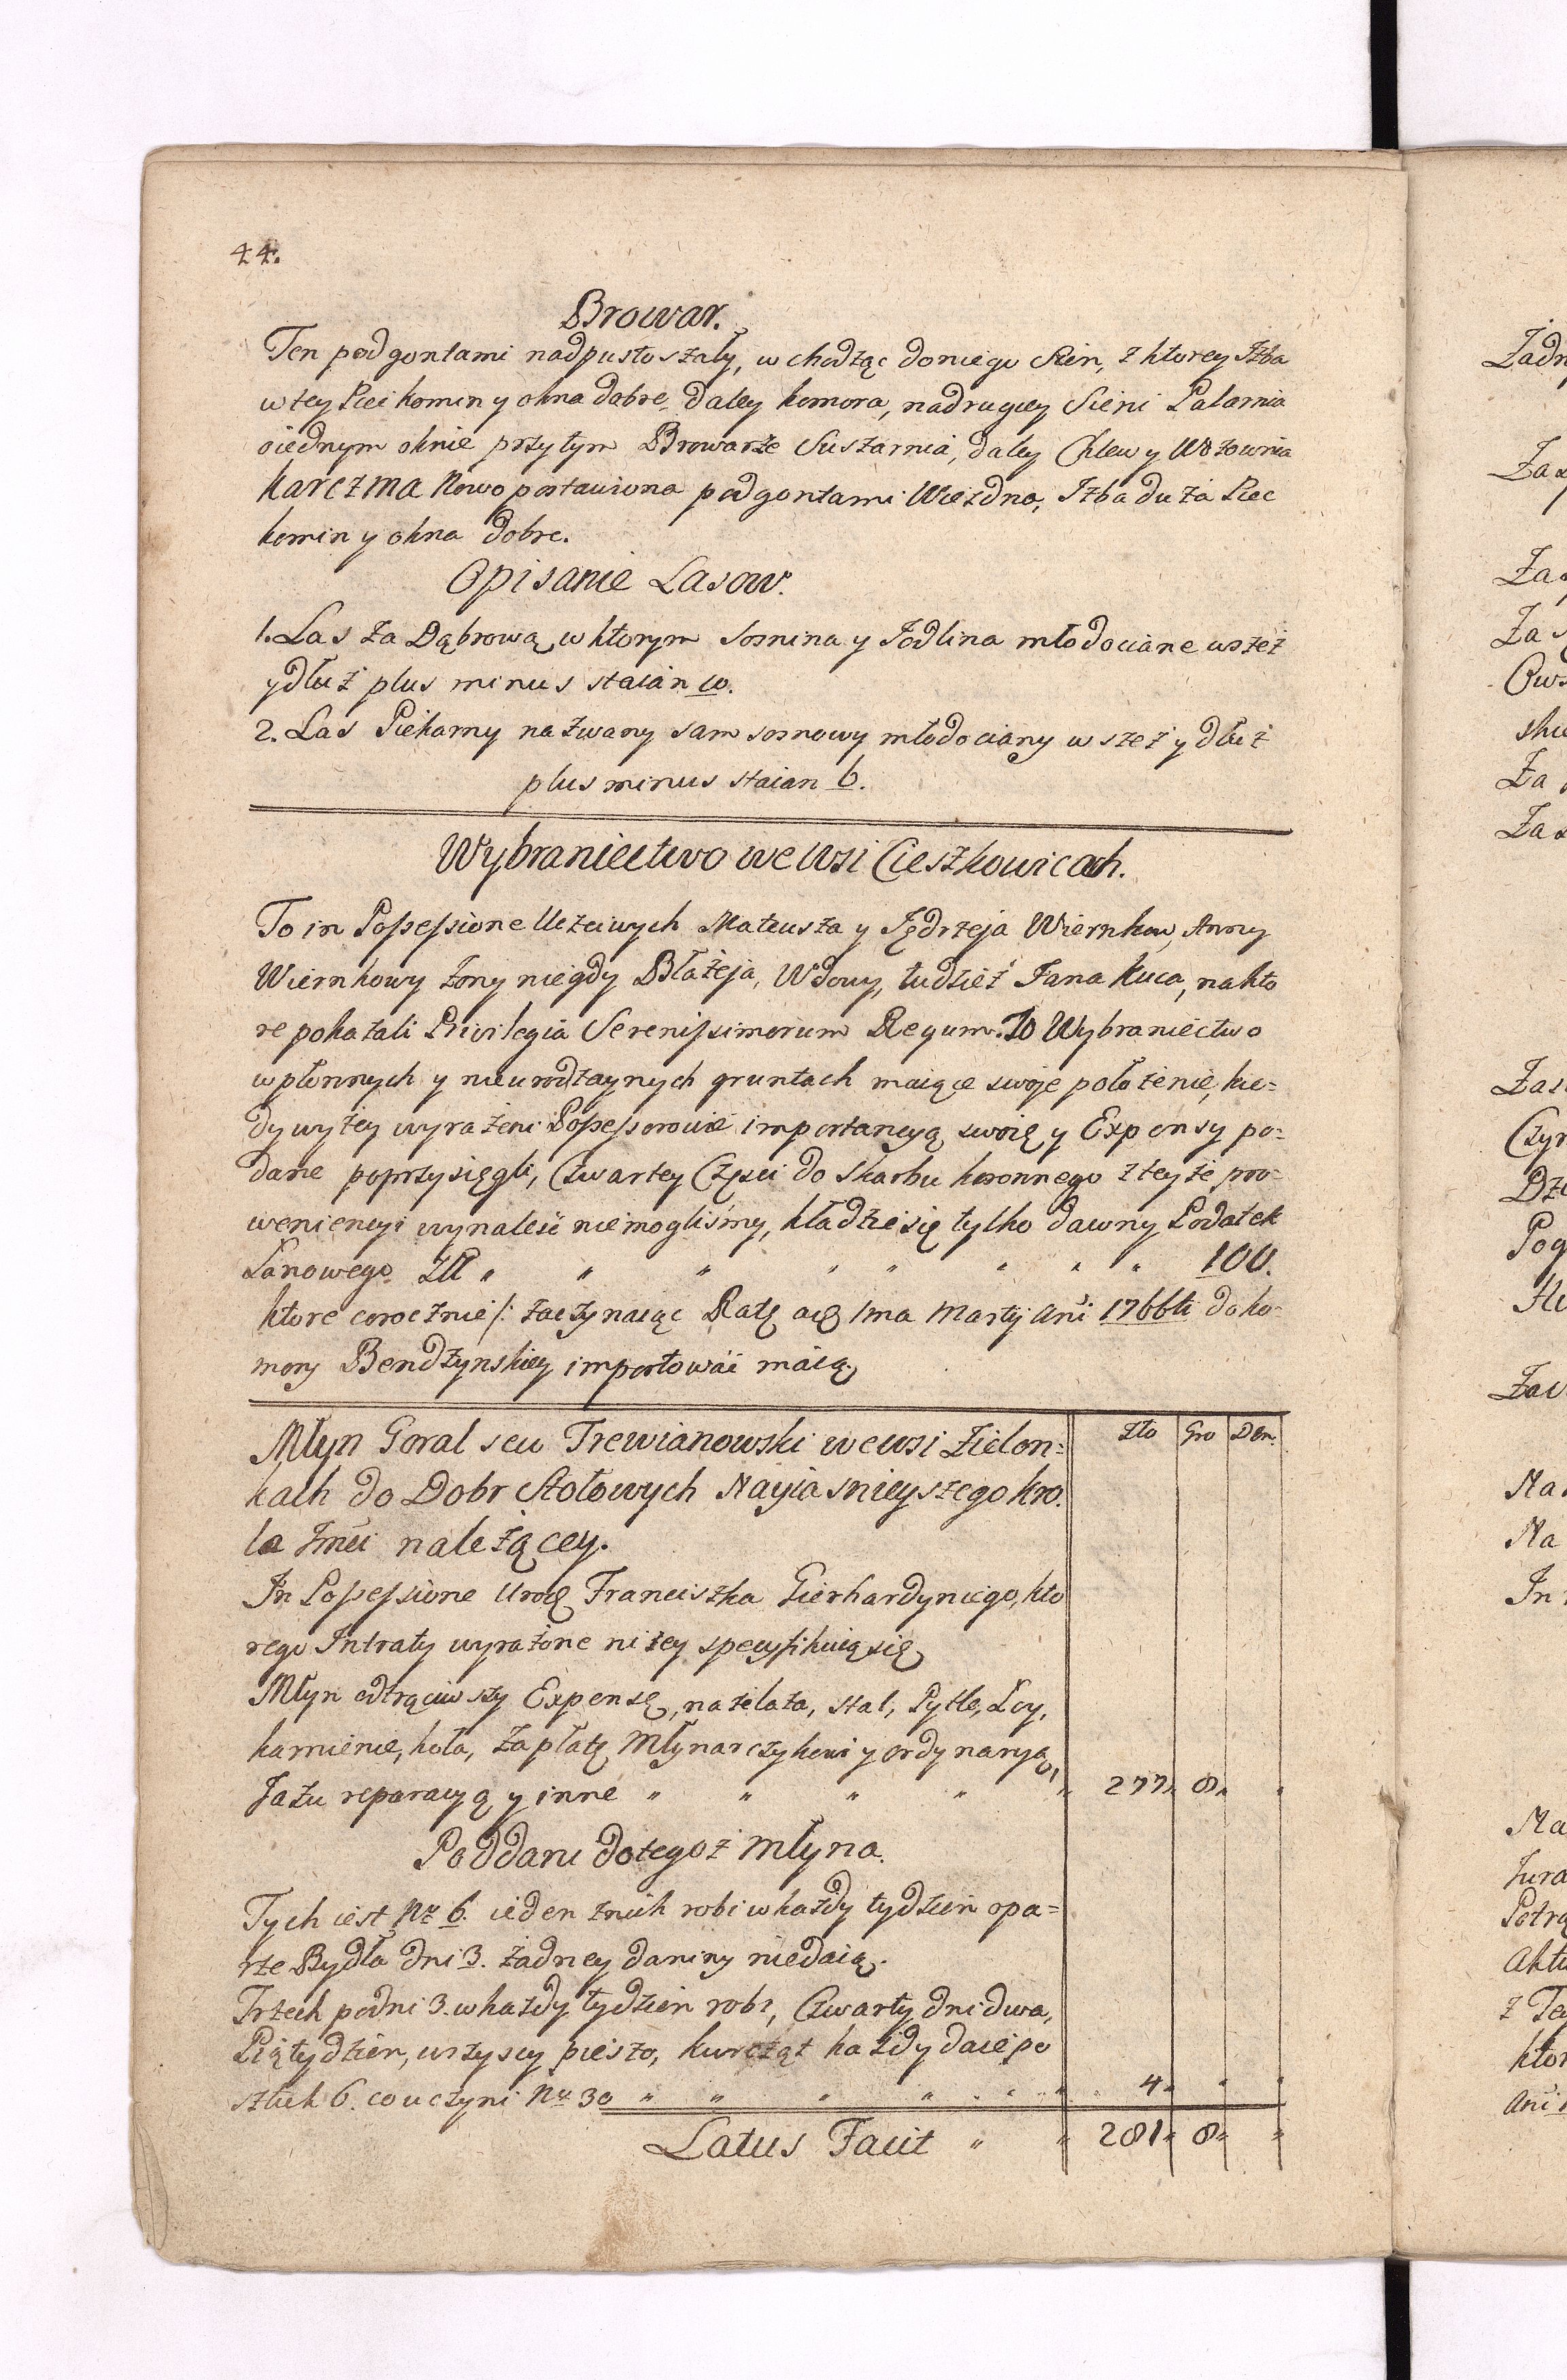 44.
Browar.
Ten pod gontami nadpustoszały, wchodząc do niego Sień, z ktorey Izba
w tey Piec komin y okna dobre, daley komora, na drugiey Sieni Palarnia
o iednym oknie przy tym Browarze Suszarnia, daley Chlew y Wozownia
Karczma Nowo postawiona pod gontami Wiezdna, Izba duża Piec
komin y okna dobre.
Opisanie Lasow.
1. Las za Dąbrową w ktorym Sosnina y Jodlina młodociane wszeż
y dłuż plus minus staian 10.
2. Las Piekarny nazwany sam sosnowy młodociany wszeż y dłuż
plus minus staian 6.
Wybraniectwo we Wsi Cieszkowicach.
To in Possessione Uczciwych Mateusza y Jędrzeja Wiernkow, Anny
Wiernkowy żony niegdy Błażeja, Wdowy, tudzież Jana Kuca, na kto
re pokazali Privilegia Serenissimorum Regum. To Wybraniectwo
w płonnych y nieurodzaynych gruntach maiące swoje położenie, kie-
dy wyżey wyrażeni Possessorowie importancyą swoię y Expensy po-
dane poprzysięgli, Czwartey Części do Skarbu koronnego z teyże pro-
weniencyi wynaleść niemogliśmy, kładzie się tylko dawny Podatek
Łanowego Zł " " " " " " " " 100.
ktore corocznie /: zaczynaiąc Ratę a die 1ma Martij Ani 1766ti do ko-
mory Bendzynskiey importować maią.
Młyn Goral seu Trewianowski we wsi Zielon- Zło Gro Den.
kach do Dobr Stołowych Nayiasnieyszego Kro.
la Jmci należącey.
In Possessione Urodz Franciszka Gierhardyniego, kto
rego Intraty wyrażone niżey specyfikuią się
Młyn odtrąciwszy Expensę, na żelaza, stal, Pytle, Łoy,
kamienie, koła, zapłatę Młynarczykowi y ordynaryą
Jazu reparacyą y inne " " " " " 277 " 8 " "
Poddani do tegoż Młyna.
Tych iest Nr 6. ieden z nich robi w każdy tydzien o pa-
rze Bydła dni 3. żadney daniny niedaią.
Trzech po dni 3. w każdy tydzien robi, Czwarty dni dwa,
Piąty dzien, wszyscy pieszo, kurcząt każdy daie po
sztuk 6. co uczyni Nr 30 " " " " " " " 4 " " "
Latus Facit " " 281 " 8 " "